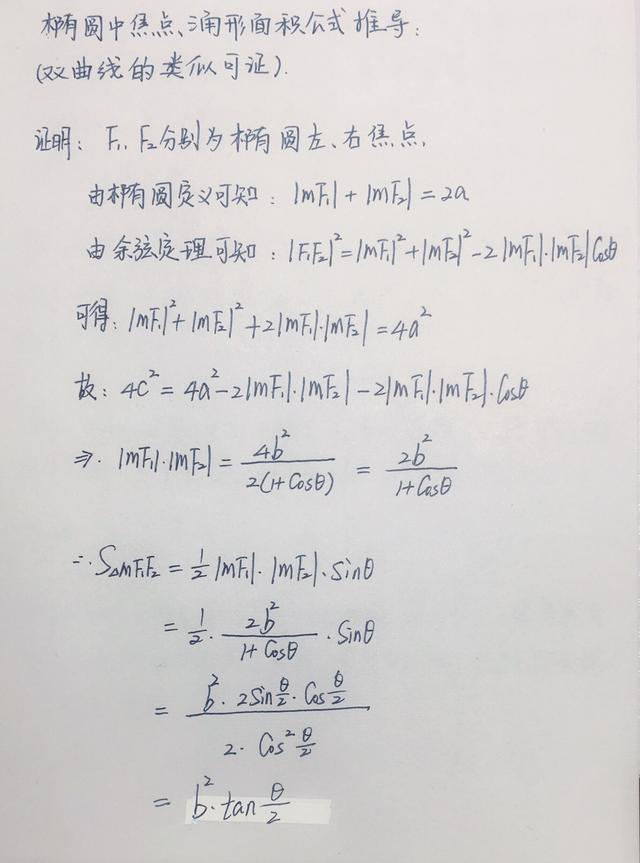 椭圆中焦点三角形面积公式推导:
(双曲线的类似可证).
证明: F₁, F₂分别为椭圆左、右焦点,
由椭圆定义可知: |mF₁| + |mF₂| = 2a
由余弦定理可知: |F₁F₂|² = |mF₁|² + |mF₂|² - 2|mF₁|·|mF₂|Cosθ
可得: |mF₁|² + |mF₂|² + 2|mF₁|·|mF₂| = 4a²
故: 4c² = 4a² - 2|mF₁|·|mF₂| - 2|mF₁|·|mF₂|·Cosθ
⇒. |mF₁|·|mF₂| = 4b² / 2(1+Cosθ) = 2b² / 1+Cosθ
∴ S△mF₁F₂ = 1/2 |mF₁|·|mF₂|·Sinθ
= 1/2 · 2b² / 1+Cosθ · Sinθ
= b²·2Sin θ/2 · Cos θ/2 / 2·Cos² θ/2
= b²·tan θ/2